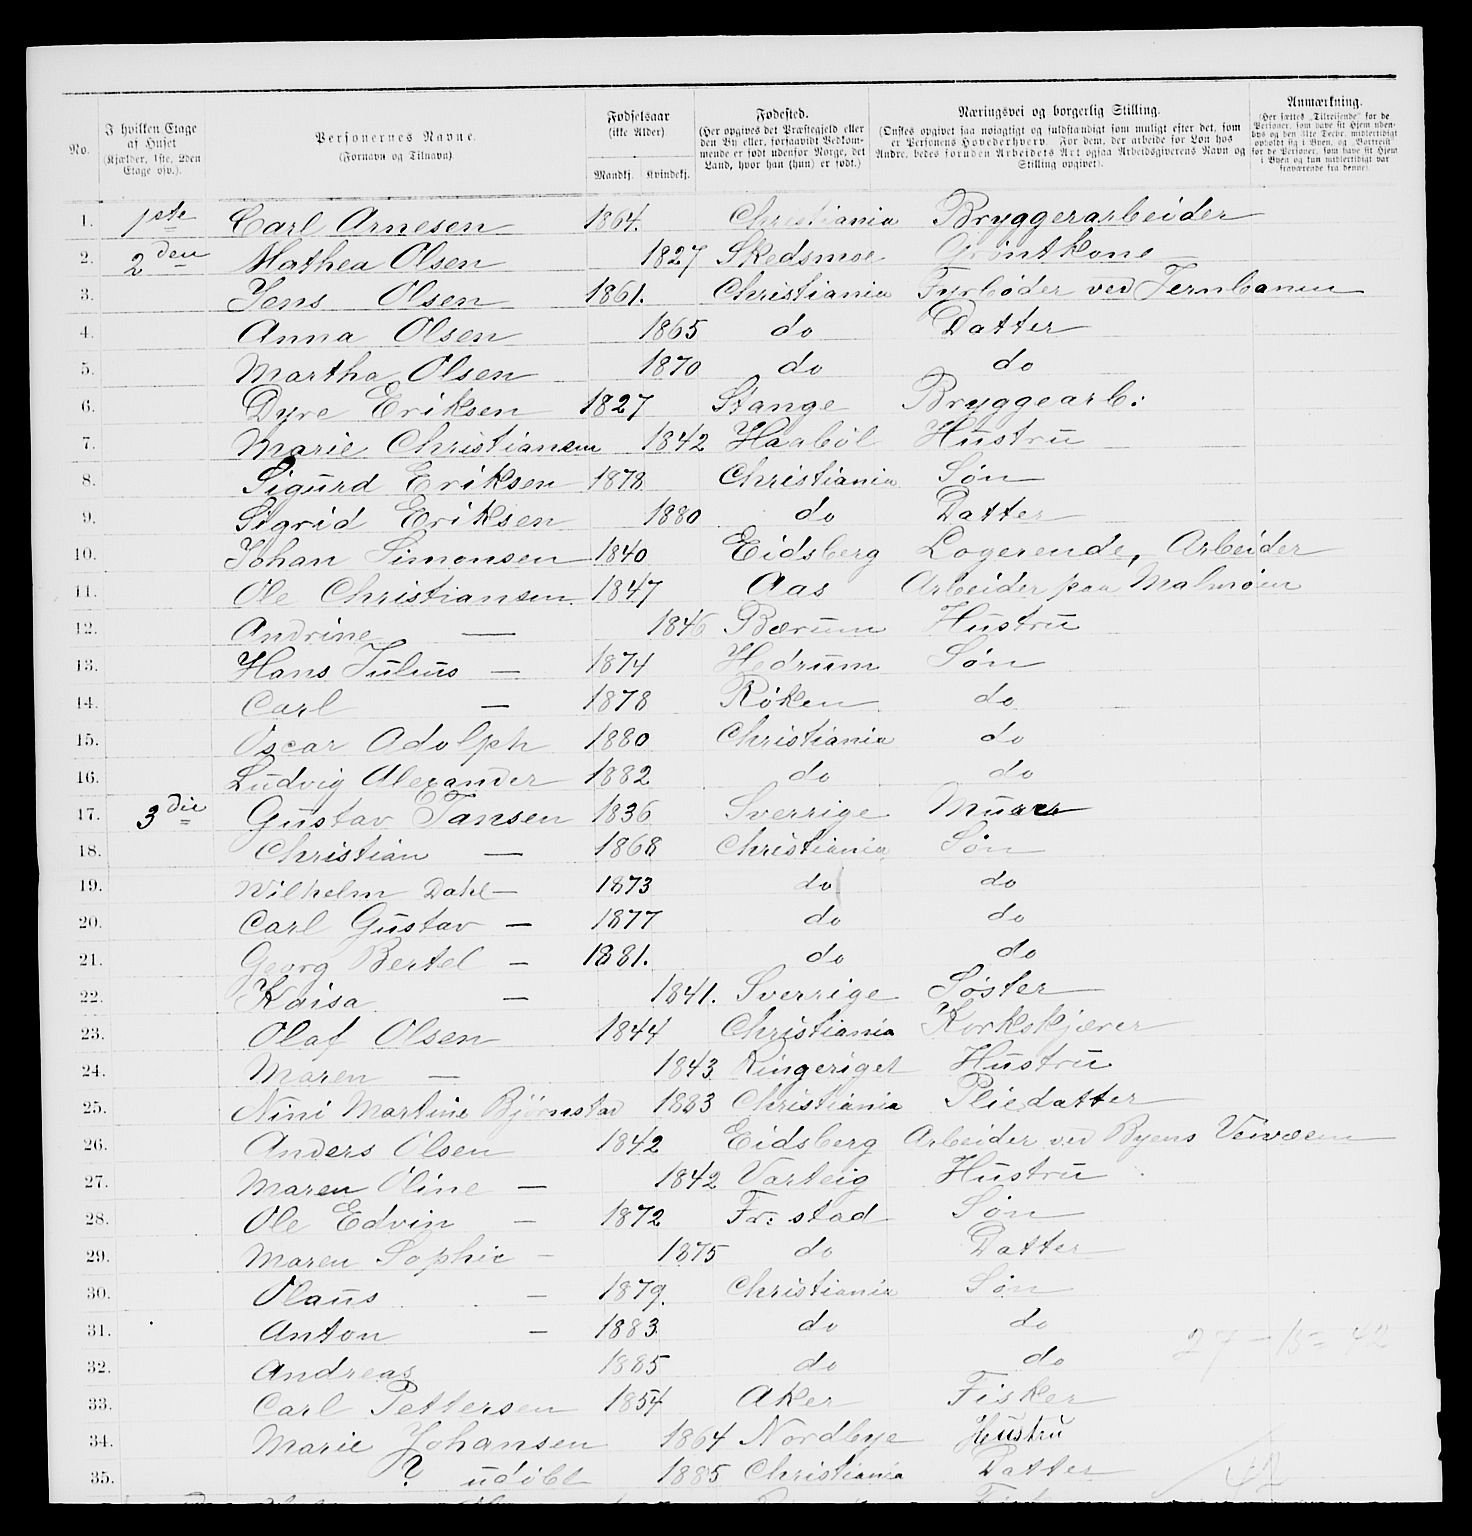 No.
I hvilken Etage af Huset (Kjælder, 1ste, 2den Etage osv.).
Personernes Navne. (Fornavn og Tilnavn)
Fødselsaar (ikke Alder)
Mandkj. Kvindekj.
Fødested. (Her opgives det Præstegjeld eller den By eller, forsaavidt Vedkommende er født udenfor Norge, det Land, hvor han (hun) er født.)
Næringsvei og borgerlig Stilling. (Ønskes opgivet saa nøiagtigt og fuldstændigt som muligt efter det, som er Personens Hovederhverv. For dem, der arbeide for Løn hos Andre, bedes foruden Arbeidets Art ogsaa Arbeidsgiverens Navn og Stilling opgivet).
Anmærkning. (Her sættes „Tilreisende" for de Personer, som have sit Hjem udenbys og den 31te Decbr. midlertidigt opholdt sig i Byen, og „Bortreist" for de Personer, som have sit Hjem i Byen og kun midlertidigt var fraværende fra denne).
1. 1ste Carl Arnesen 1864. Christiania Bryggerarbeider
2. 2den Mathea Olsen 1827 Skedsmoe Grøntkone
3. Jens Olsen 1861. Christiania Fyrbøder ved Jernbanen
4. Anna Olsen 1865 do Datter
5. Martha Olsen 1870 do do
6. Dyre Eriksen 1827 Stange Bryggearb:
7. Marie Christiansen 1842 Haabøl Hustru
8. Sigurd Eriksen 1878 Christiania Søn
9. Sigrid Eriksen 1880 do Datter
10. Johan Simonsen 1840 Eidsberg Logerende, Arbeider
11. Ole Christiansen 1847 Aas Arbeider paa Malmøen
12. Andrine — 1846 Bærum Hustru
13. Hans Julius — 1874 Hedrum Søn
14. Carl — 1878 Røken do
15. Oscar Adolph 1880 Christiania do
16. Ludvig Alexander 1882 do do
17. 3die Gustav Jansen 1836 Sverrige Murer
18. Christian — 1868 Christiania Søn
19. Wilhelm Dahl — 1873 do do
20. Carl Gustav — 1877 do do
21. Georg Bertel — 1881. do do
22. Kaisa — 1841. Sverrige Søster
23. Olaf Olsen 1844 Christiania Korkskjærer
24. Maren — 1843 Ringeriget Hustru
25. Nini Martine Bjørnstad 1883 Christiania Pliedatter
26. Anders Olsen 1842 Eidsberg Arbeider ved Byens Veivæsen
27. Maren Oline — 1842 Varteig Hustru
28. Ole Edvin — 1872 Fr: stad Søn
29. Maren Sophie — 1875 do Datter
30. Olaus — 1879. Christiania Søn
31. Anton — 1883 do do
32. Andreas 1885 do do
27 — 15 = 42
33. Carl Pettersen 1854 Aker Fisker
34. Marie Johansen 1864 Nordbye Hustru
35. ? udøbt 1885 Christiania Datter
42